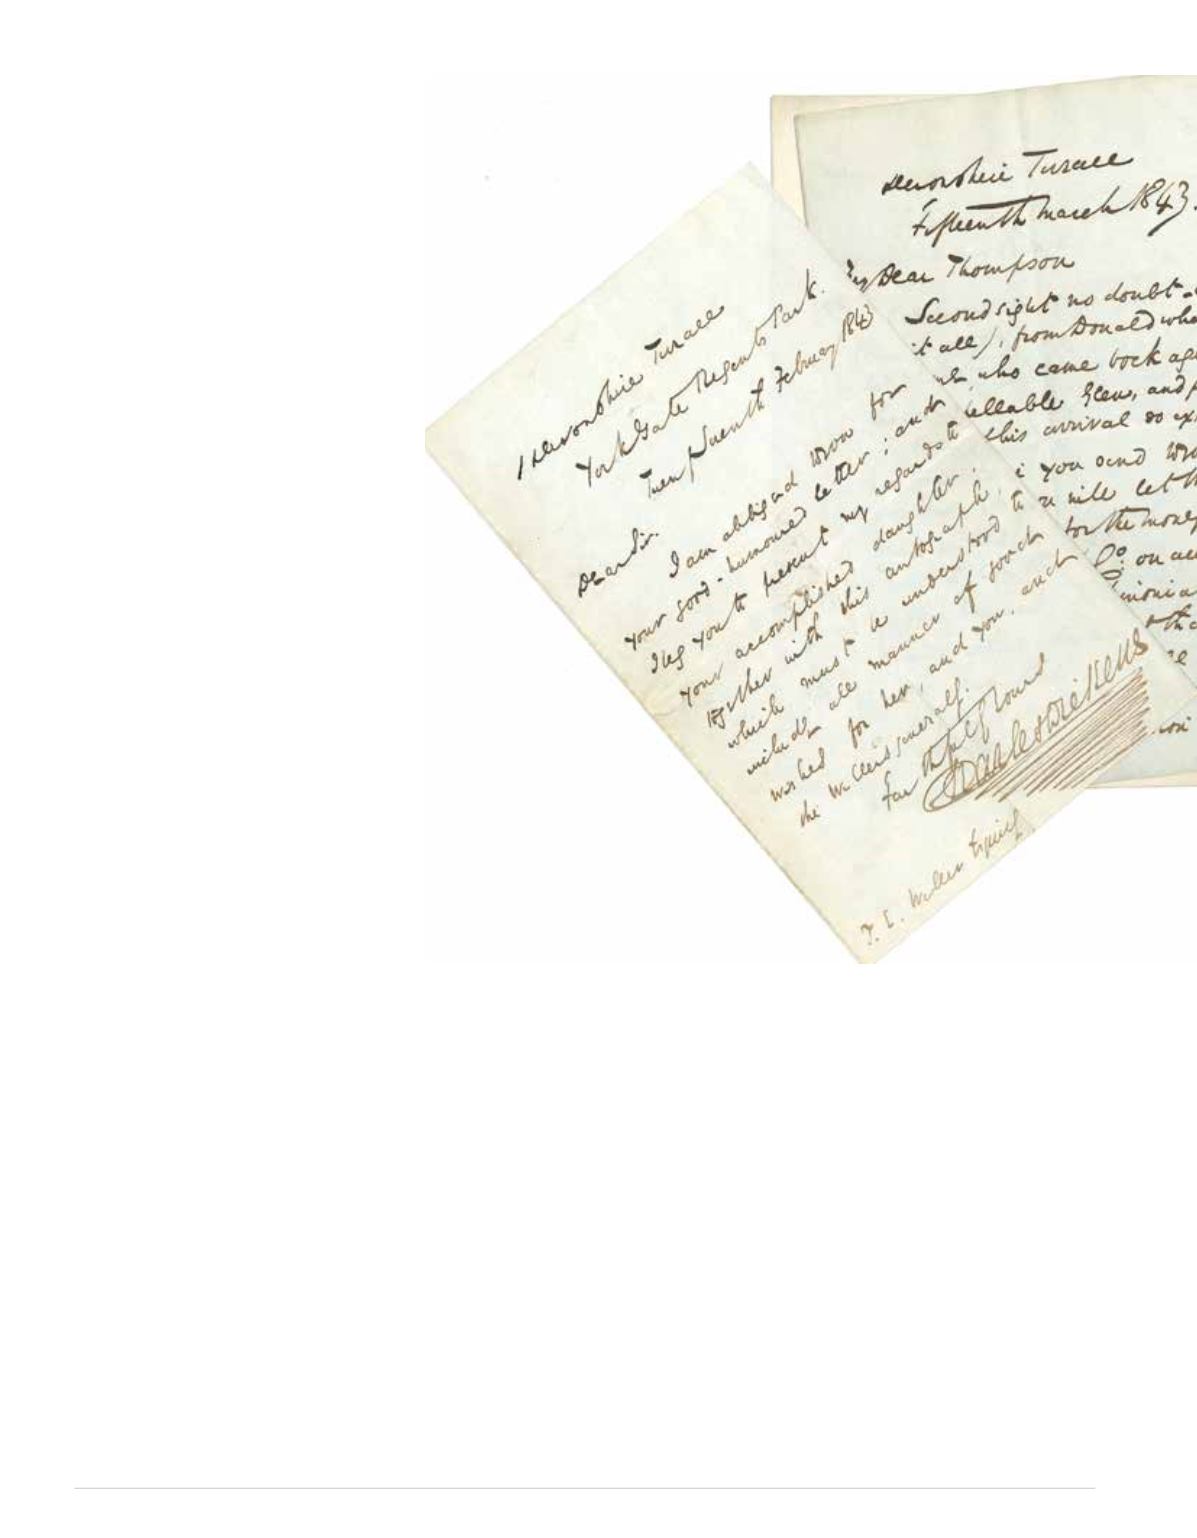 1 Devonshire Terrace
York Gate Regents Park.
Twenty Seventh February 1843
Dear Sir.
I am obliged for
your good-humoured letter; and
I beg you to present my regards to
your accomplished daughter,
together with this autograph,
which must be understood to
include all manner of good
wishes for her, and you, and
the Wellers generally.
Faithfully Yours
Charles Dickens
T. E. Weller Esquire
Devonshire Terrace
Fifteenth March 1843.
My Dear Thompson
Second sight no doubt
it all), from Donald
who came back
Glen, and
this arrival so
you send
let
for the money
on